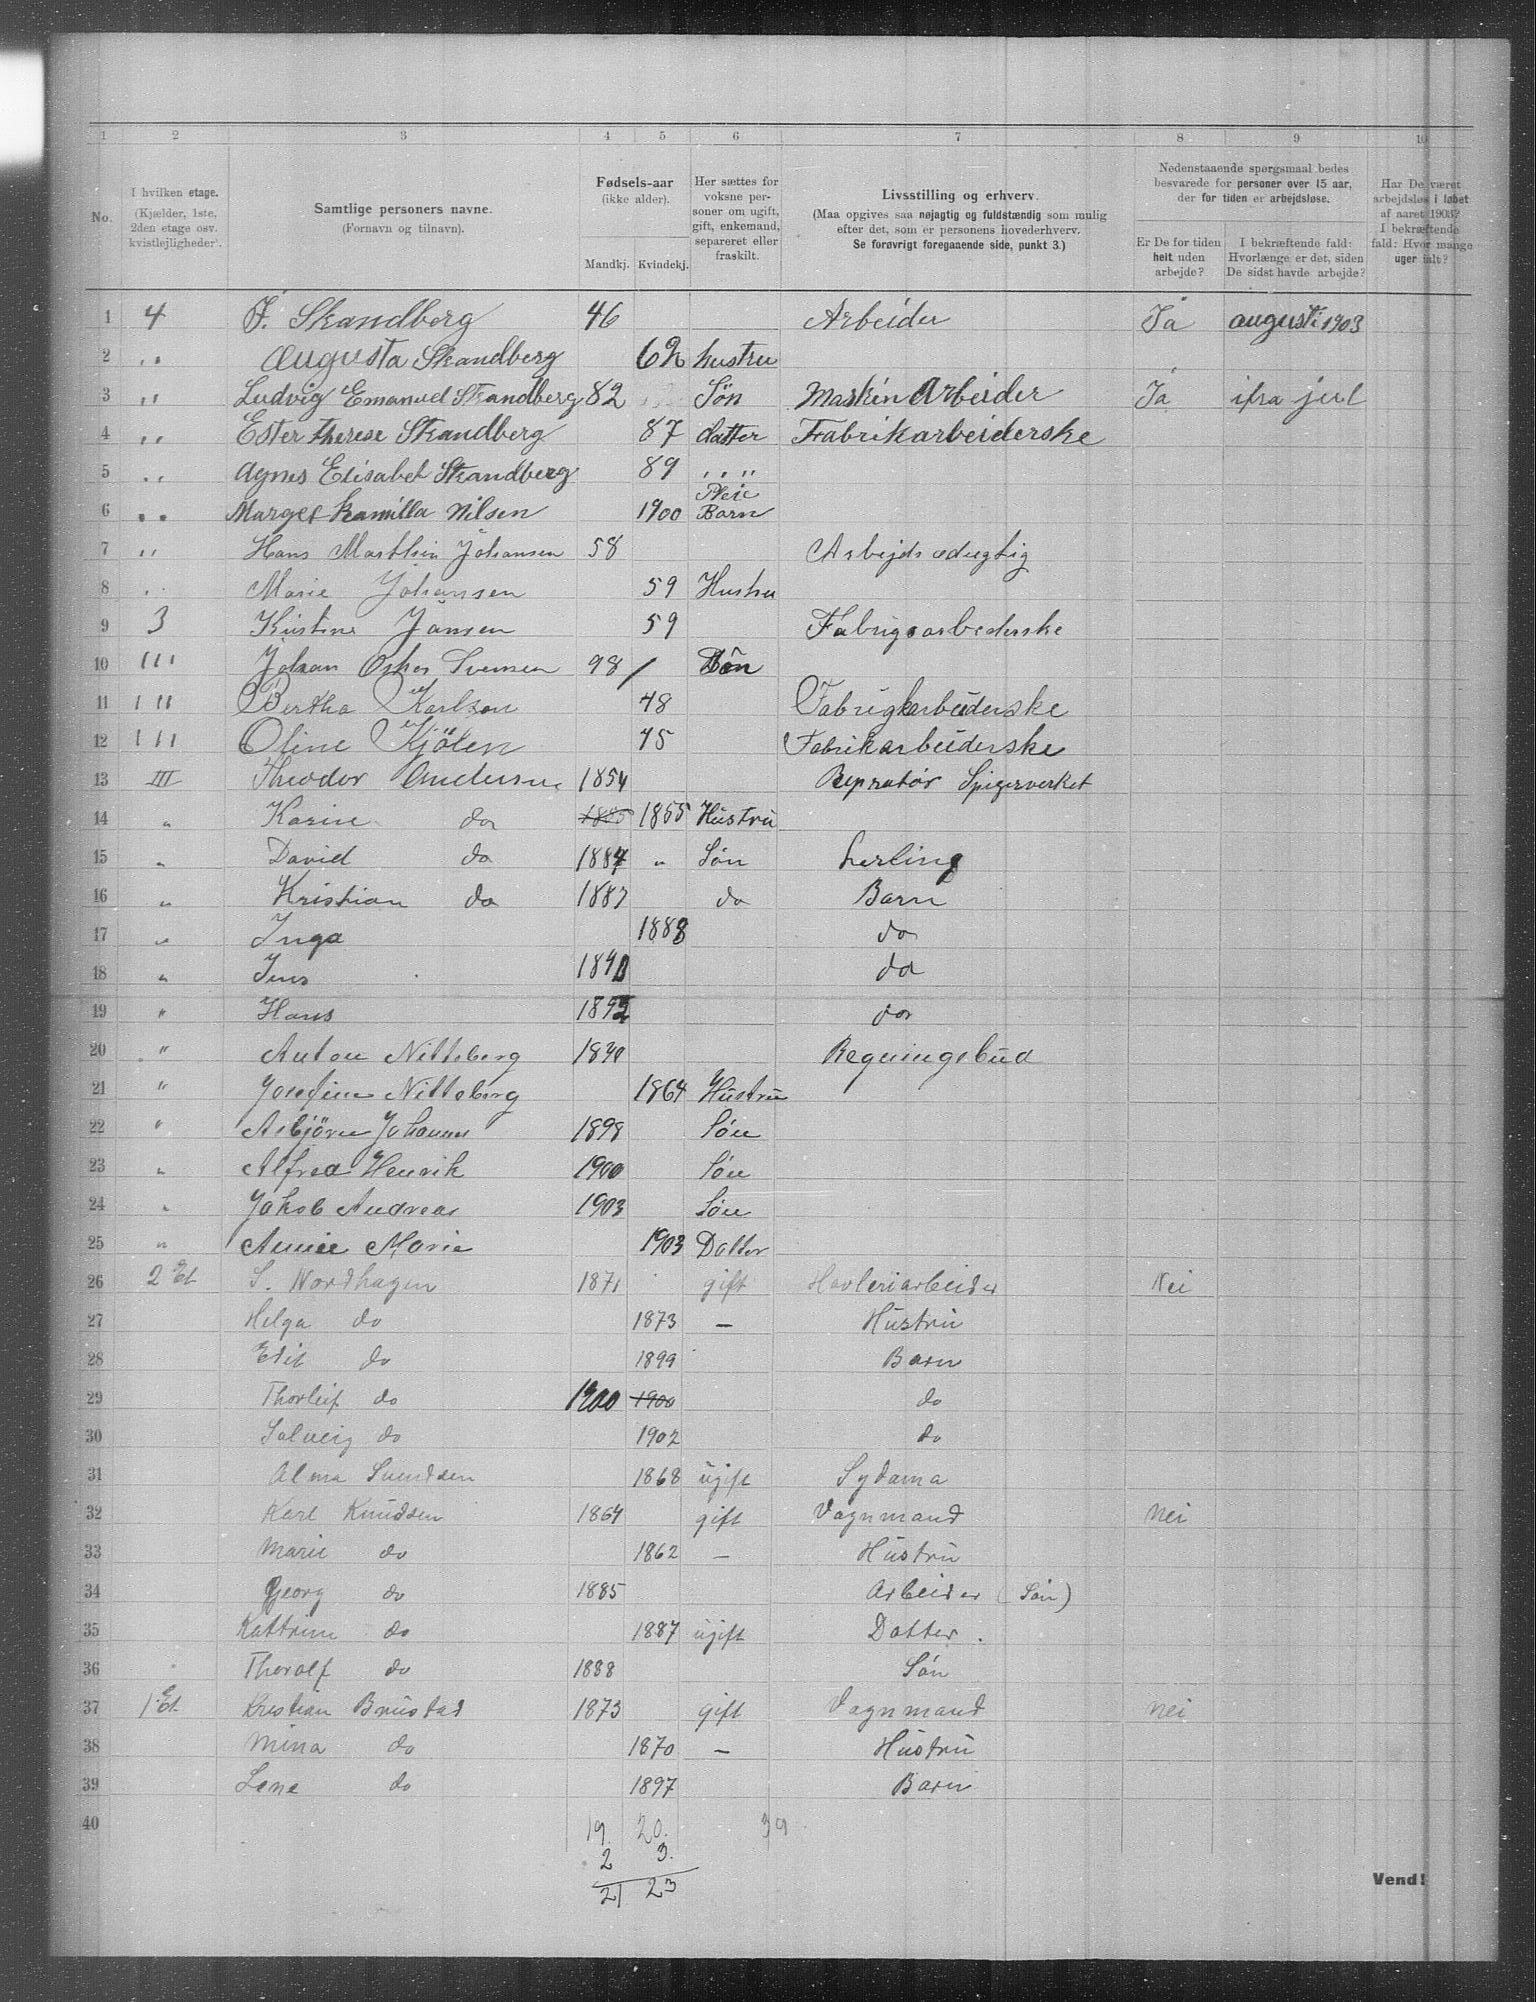 1 2 3 4 5 6 7 8 9 10
No.
I hvilken etage.
(Kjælder, 1ste,
2den etage osv.
kvistlejligheder).
Samtlige personers navne.
(Fornavn og tilnavn).
Fødsels-aar
(ikke alder).
Mandkj. Kvindekj.
Her sættes for
voksne per-
soner om ugift,
gift, enkemand,
separeret eller
fraskilt.
Livsstilling og erhverv.
(Maa opgives saa nøjagtig og fuldstændig som mulig
efter det, som er personens hovederhverv.
Se forøvrigt foregaaende side, punkt 3.)
Nedenstaaende spørgsmaal bedes
besvarede for personer over 15 aar,
der for tiden er arbejdsløse.
Er De for tiden
helt uden
arbejde?
I bekræftende fald:
Hvorlænge er det, siden
De sidst havde arbejde?
Har De været
arbejdsløs i løbet
af aaret 1903?
I bekræftende
fald: Hvor mange
uger ialt?
1 4 F. Skandberg 46 Arbeider Ja augusti 1903
2 " Augusta Skandberg 62 hustru
3 " Ludvig Emanuel Skandberg 82 Søn Maskin Arbeider Ja ifra jul
4 " Ester Therese Skandberg 87 datter Fabrikarbeiderske
5 " Agnes Elisabet Skandberg 89 " "
6 " Marget Kamilla Nilsen 1900 Pleie Barn
7 " Hans Marthin Johansen 58 Arbejdsudugtig
8 " Marie Johansen 59 Hustru
9 3 Kristine Jansen 59 Fabrigsarbederske
10 III Johan Oskar Svensen 98 / Søn
11 III Bertha Karlsen 48 Fabrigkarbeiderske
12 III Oline Kjölen 45 Fabrikarbeiderske
13 III Theodor Andersen 1854 Repratör Spigerverket
14 " Karine do 1885 1855 Hustru
15 " David do 1884 " Søn Lerling
16 " Kristian do 1887 do Barn
17 " Inga 1888 do
18 " Jens 1890 do
19 " Hans 1892 do
20 " Anton Nitteberg 1870 Regningsbud
21 " Josefine Nitteberg 1864 Hustru
22 " Asbjörn Johannes 1898 Søn
23 " Alfred Henrik 1900 Søn
24 " Jakob Andreas 1903 Søn
25 " Annie Marie 1903 Datter
26 2 Et S. Nordhagen 1871 gift Høvleriarbeider Nei
27 Helga do 1873 — Hustru
28 Edit do 1899 Barn
29 Thorleif do 1900 1900 do
30 Solveig do 1902 do
31 Alma Svendsen 1868 ugift Sydama
32 Karl Knudsen 1864 gift Vognmand Nei
33 Marie do 1862 — Hustru
34 Georg do 1885 Arbeider (Søn)
35 Kattrine do 1887 ugift Datter.
36 Thoralf do 1888 Søn
37 1 Et. Kristian Brustad 1873 gift Vognmand Nei
38 Mina do 1870 — Hustru
39 Lene do 1897 Barn
40 19 20. 39
2 3.
21 23
Vend!